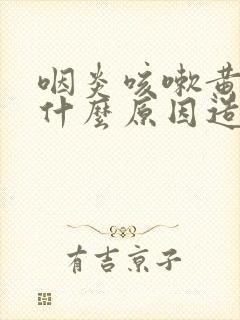 咽炎咳嗽黄
什麼原因造
有吉京子